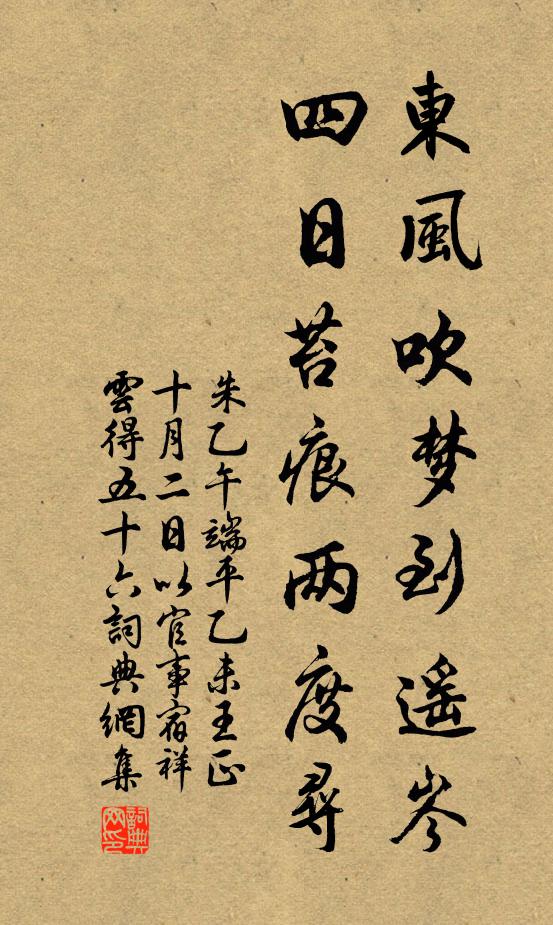 東風吹梦到遥岑
四日苔痕两度尋
朱乙午端平乙未王正
十月二日以官事宿祥
雲得五十六詞典網集
詞典网印